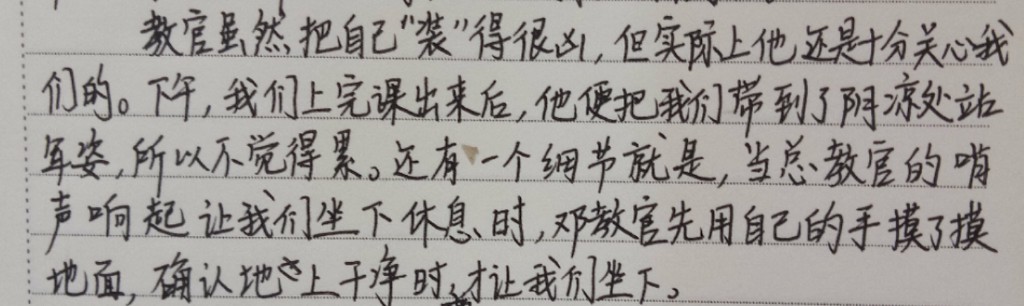 教官虽然把自己“装”得很凶，但实际上他还是十分关心我
们的。下午，我们上完课出来后，他便把我们带到了阴凉处站
军姿，所以不觉得累。还有一个细节就是，当总教官的哨
声响起让我们坐下休息时，邓教官先用自己的手摸了摸
地面，确认地上干净时，才让我们坐下。